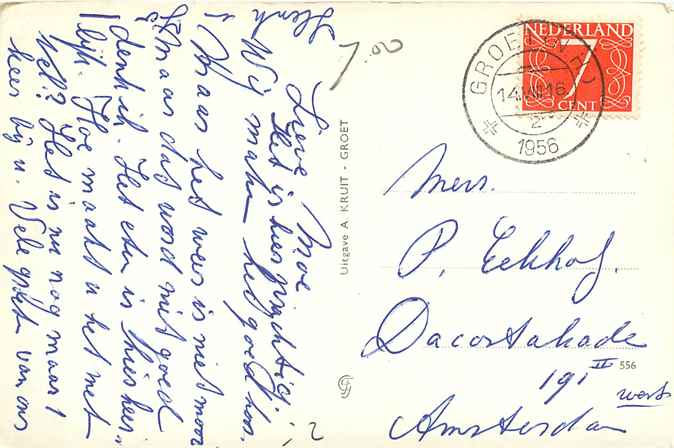 Lieve Moe
Het is hier prachtig.
Wij maken het goed hoor.
Maar het weer is niet mooi
Maar dat word niet goed
denk ik. Het eten is hier heer-
lijk. Hoe maakt u het met
Nel? Het is nu nog maar 1
keer bij u. Vele groeten van ons
Henk
7.00
Uitgave A. KRUIT - GROET
NEDERLAND
7
CENT
GROET
1956
Mevr.
P. Eekhof.
Dacostakade
191 II
west
Amsterdam
556